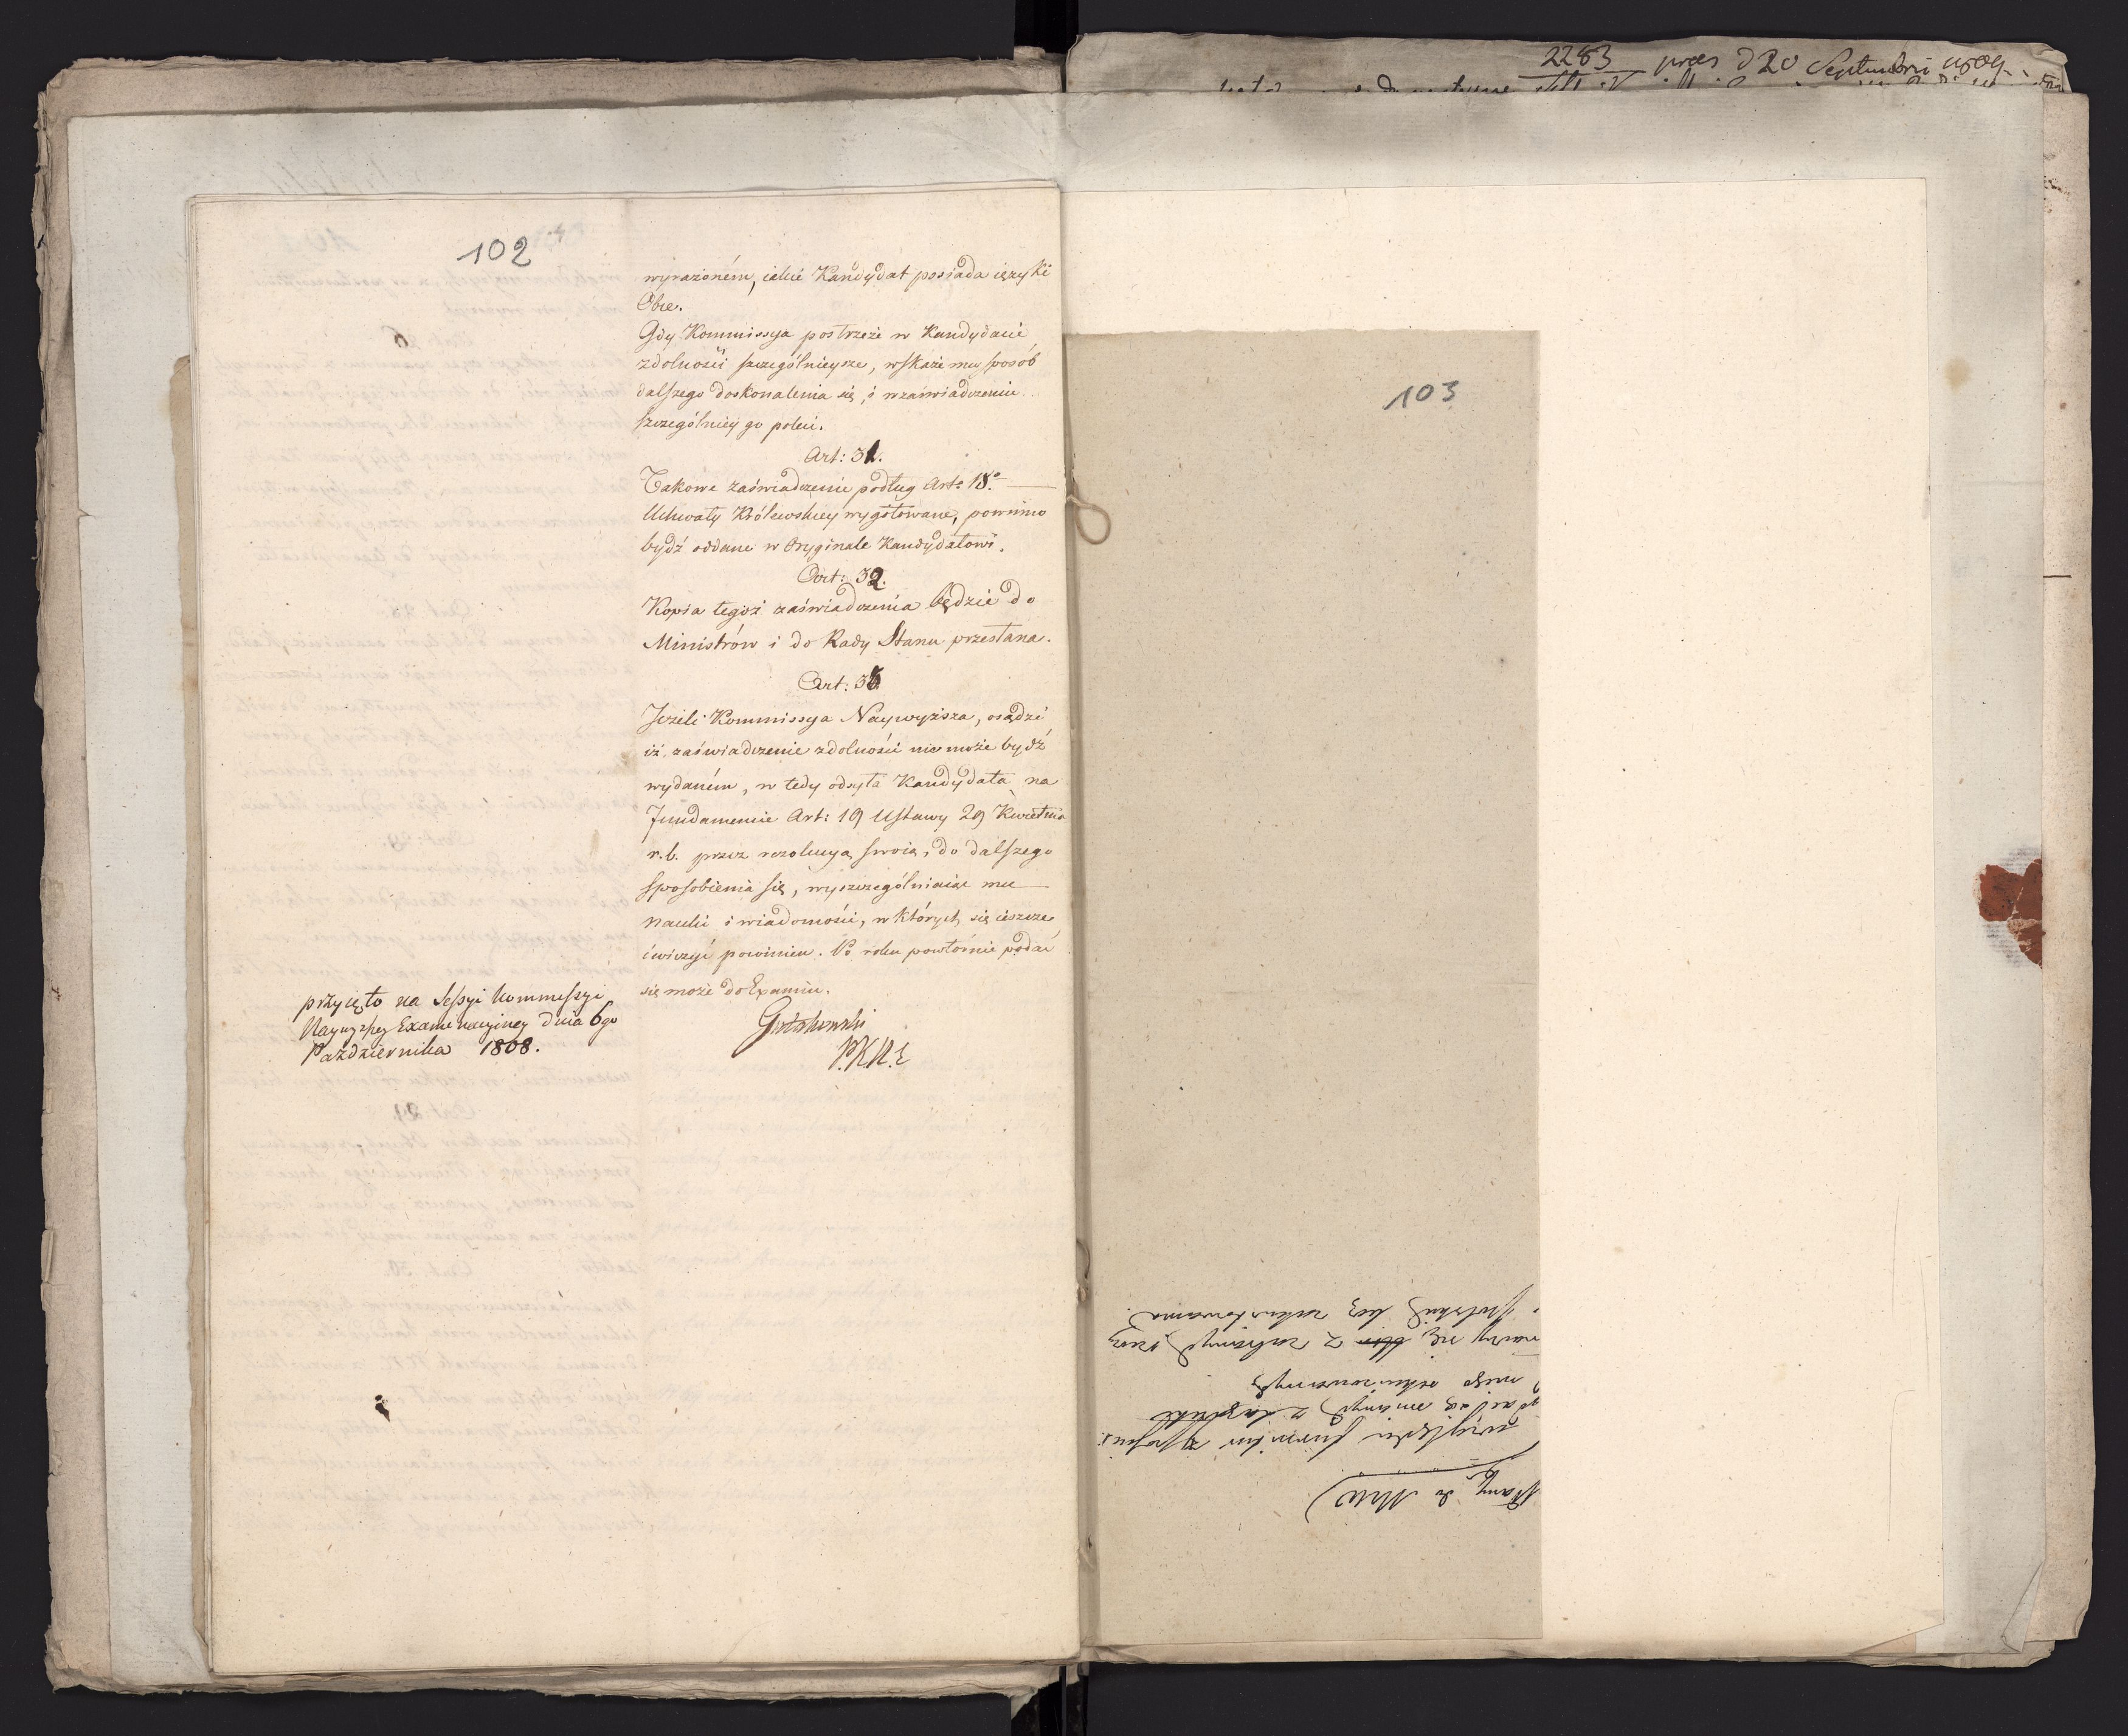 102
wyrażoném, iakie Kandydat posiada ięzyki
Obce.
Gdy Kommissya postrzeże w Kandydacie
zdolności szczególnieysze, wskaże mu sposób
dalszego doskonalenia się, i w zaświadczeniu
szczególniey go poleci.
Art: 31.
Takowe zaświadczenie podług Art: 18.
Uchwały Królewskiey wygotowane, powinno
bydź oddane w Oryginale Kandydatowi.
Art: 32.
Kopia tegoż zaświadczenia będzie do
Ministrów i do Rady Stanu przesłana.
Art: 33.
Jeżeli Kommissya Naywyższa, osądzi
iż zaświadczenie zdolności nie może bydź
wydaném, w tedy odsyła Kandydata na
Fundamencie Art: 19 Ustawy 29 Kwietnia
r. b. przez rezolucyą swoią, do dalszego
sposobienia się, wyszczególniaiąc mu
nauki i wiadomości, w których się ieszcze
ćwiczyć powinien. Po roku powtórnie podać
się może do Examin.
przyięto na Sessyi Kommissyi
Naywyższey Examinacyiney dnia 6go
Października 1808.
P.K.N.E
103
2283 praes d 20 Septembris 1809